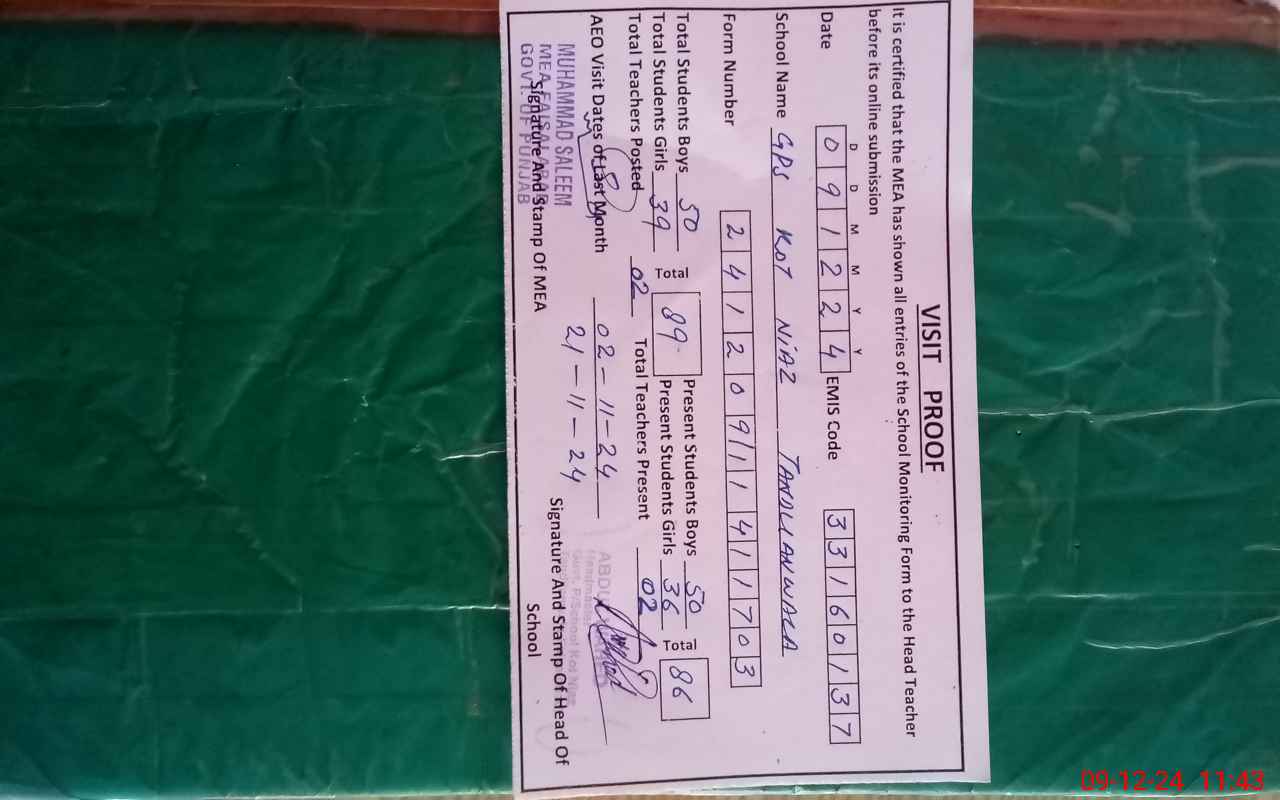 VISIT PROOF
It is certified that the MEA has shown all entries of the School Monitoring Form to the Head Teacher
before its online submission
D D M M Y Y
Date 0 9 1 2 2 4 EMIS Code 3 3 1 6 0 1 3 7
School Name GPS KOT NiAZ TANDLIANWALA
Form Number 2 4 1 2 0 9 1 1 4 1 1 7 0 3
Total Students Boys 50 Present Students Boys 50
Total Students Girls 39 Total 89 Present Students Girls 36 Total 86
Total Teachers Posted 02 Total Teachers Present 02
AEO Visit Dates of Last Month 02-11-24
21-11-24
MUHAMMAD SALEEM
MEA FAISALABAD
GOVT. OF PUNJAB
Signature And Stamp Of MEA
Signature And Stamp Of Head Of
School
09-12-24 11:43